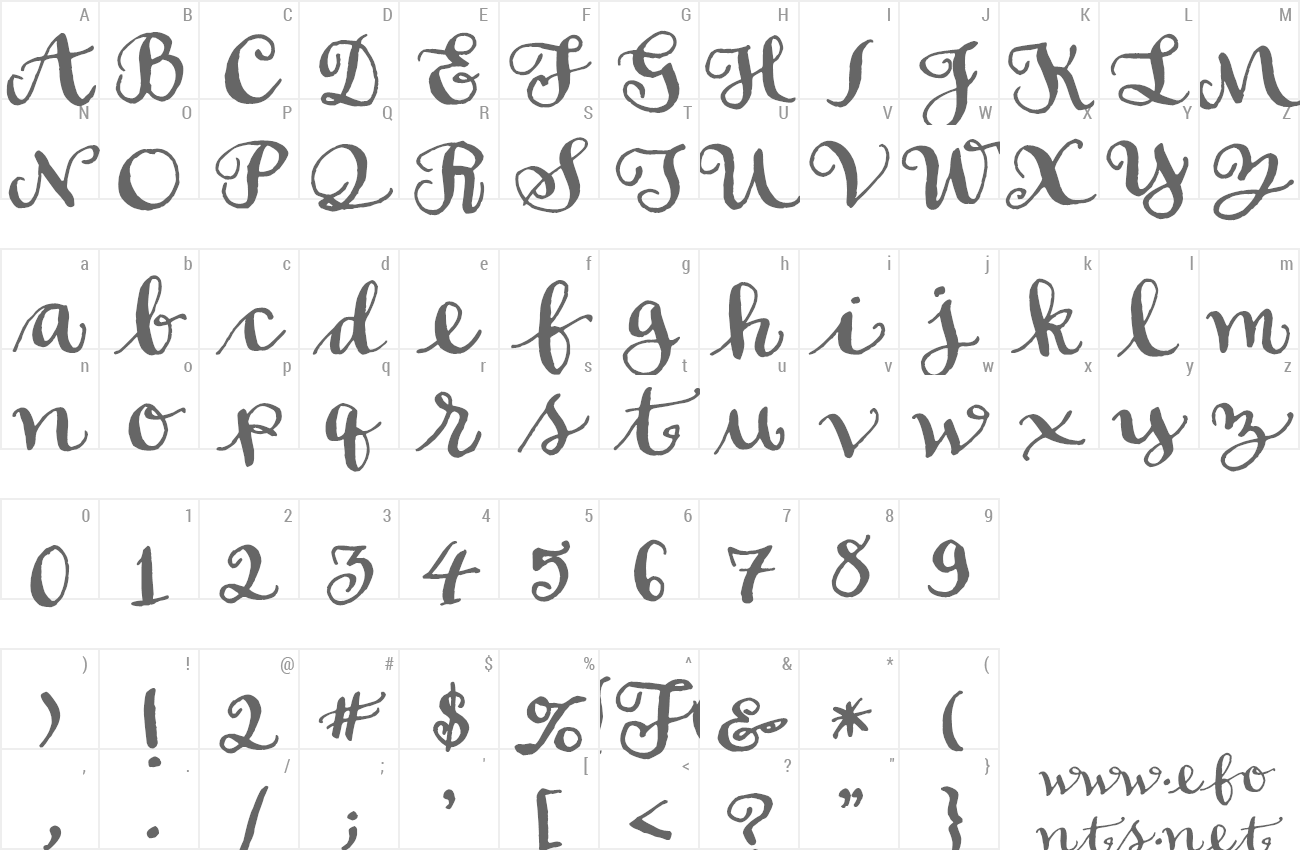 A B C D E F G H I J K L M
A B C D E F G H I J K L M
N O P Q R S T U V W X Y Z
N O P Q R S T U V W X Y Z
a b c d e f g h i j k l m
a b c d e f g h i j k l m
n o p q r s t u v w x y z
n o p q r s t u v w x y z
0 1 2 3 4 5 6 7 8 9
0 1 2 3 4 5 6 7 8 9
) ! @ # $ % ^ & * (
) ! 2 # $ % F & * (
, . / ; ' [ < ? " }
, . / ; ’ [ < ? ” }
www.efo
nts.net